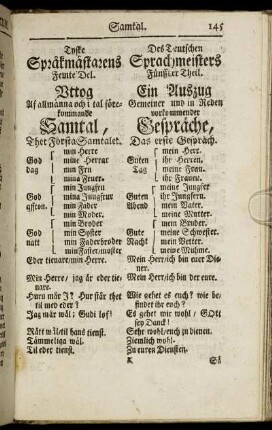 Samtal. 145
Tyske
Språkmästarens
Femte Del.
Uttog
Af allmänna och i tal före-
kommande
Samtal,
Thet Första Samtalet.
min Herre
God mine Herrar
dag min Fru
mina Fruer.
min Jungfru
God mina Jungfrur
afton. min Fader
min Moder.
min Broder
God min Syster
natt min Faderbroder
min Faster, moster
Eder tienare/min Herre.
Min Herre/ jag är eder tie-
nare.
Huru mår J? Hur står thet
til med eder?
Jag mår wäl; Gudi lof!
Rätt wäl/til hans tienst.
Tämmeliga wäl.
Til eder tienst.
Des Teutschen
Sprachmeisters
Fünffter Theil.
Ein Auszug
Gemeiner und in Reden
vorkommender
Gespräche,
Das erste Gespräch.
mein Herr.
Guten ihr Herren.
Tag meine Frau.
ihr Frauen.
meine Jungfer
Guten ihr Jungfern.
Abend mein Vater.
meine Mutter.
mein Bruder.
Gute meine Schwester.
Nacht mein Vetter.
meine Muhme.
Mein Herr/ich bin euer Die-
ner.
Mein Herr/ich bin der eure.
Wie gehet es euch? wie be-
findet ihr euch?
Es gehet mir wohl/ GOtt
sey Danck!
Sehr wohl/euch zu dienen.
Ziemlich wohl.
Zu euren Diensten.
K Så